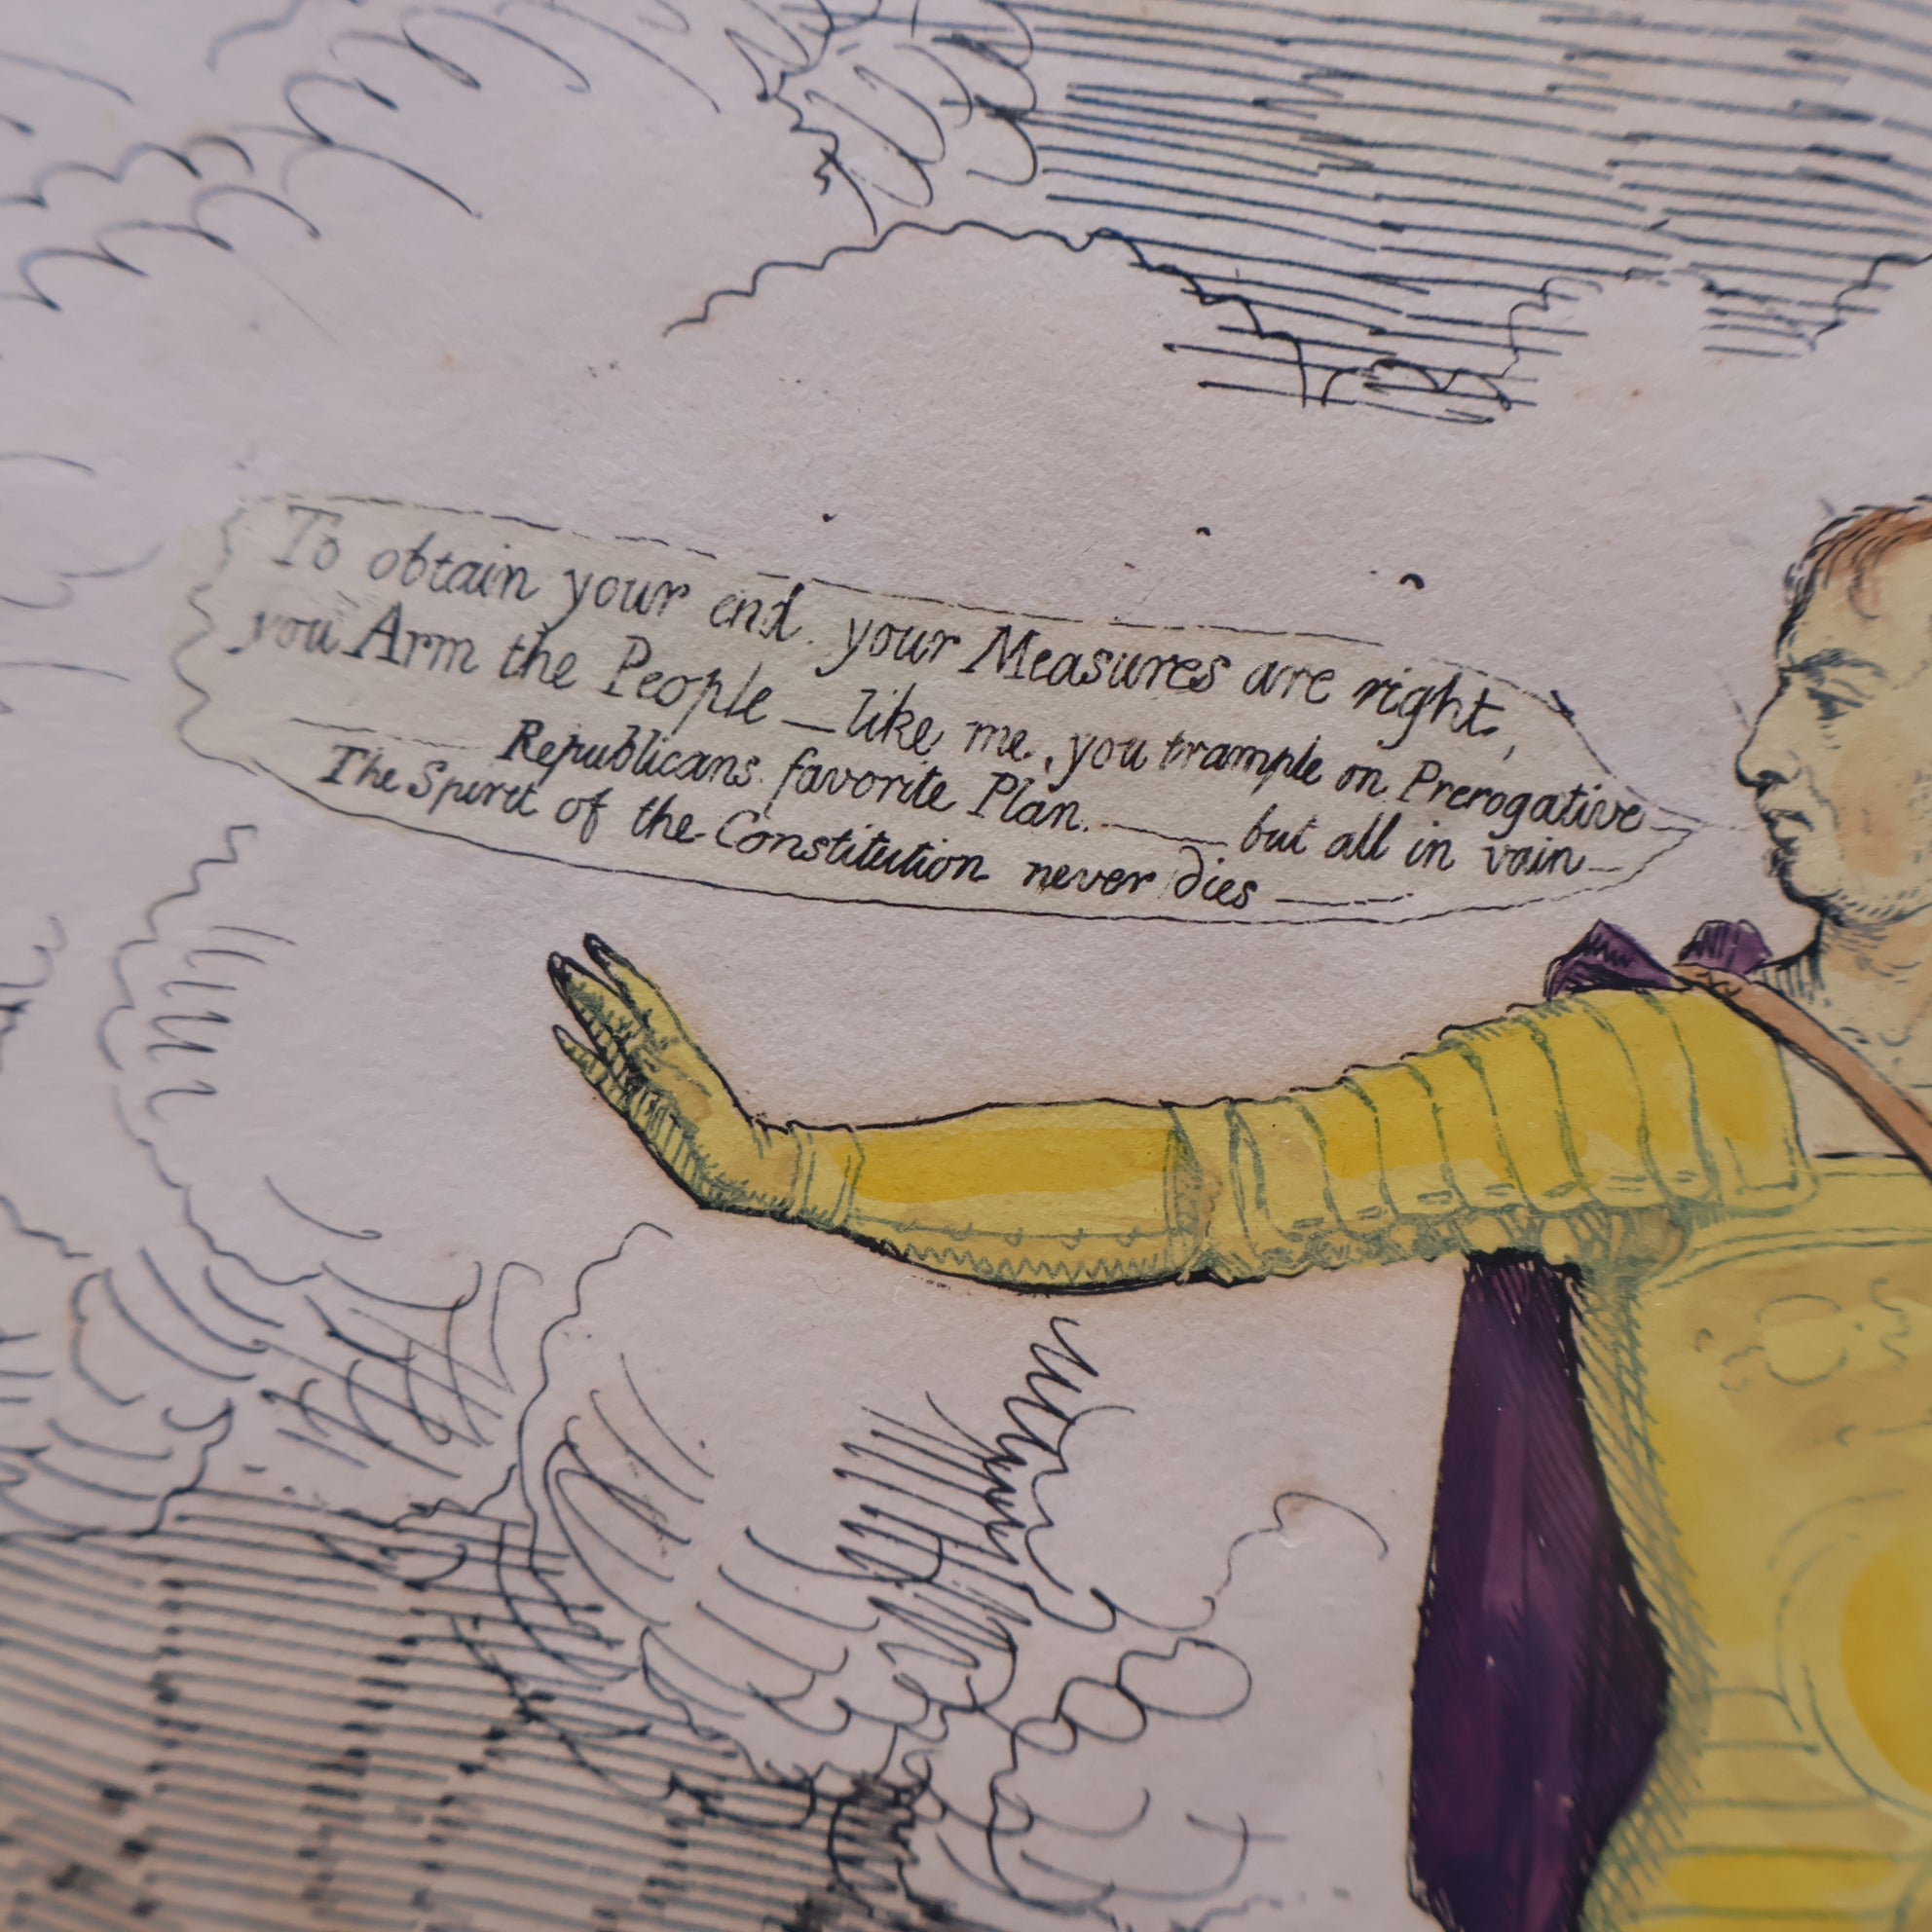 To obtain your end. your Measures are right,
you Arm the People — like me, you trample on Prerogative —
Republicans favorite Plan. — but all in vain —
The Spirit of the Constitution never Dies —